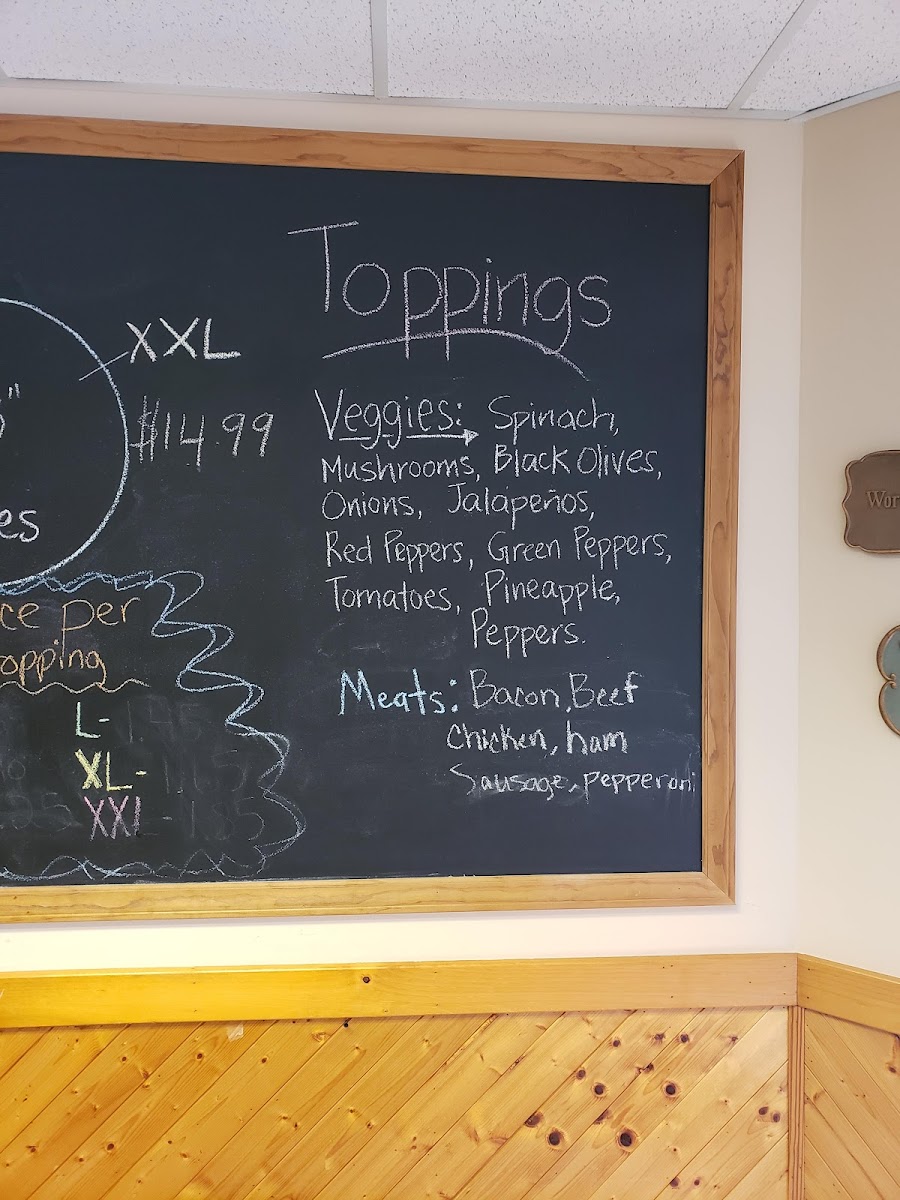 Toppings
XXL
$14.99
Veggies: Spinach,
Mushrooms, Black Olives,
Onions, Jalapeños,
Red Peppers, Green Peppers,
Tomatoes, Pineapple,
Peppers.
Meats: Bacon, Beef
Chicken, ham
Sausage, pepperoni
es
ce per
opping
L-
XL-
XXL
Wor